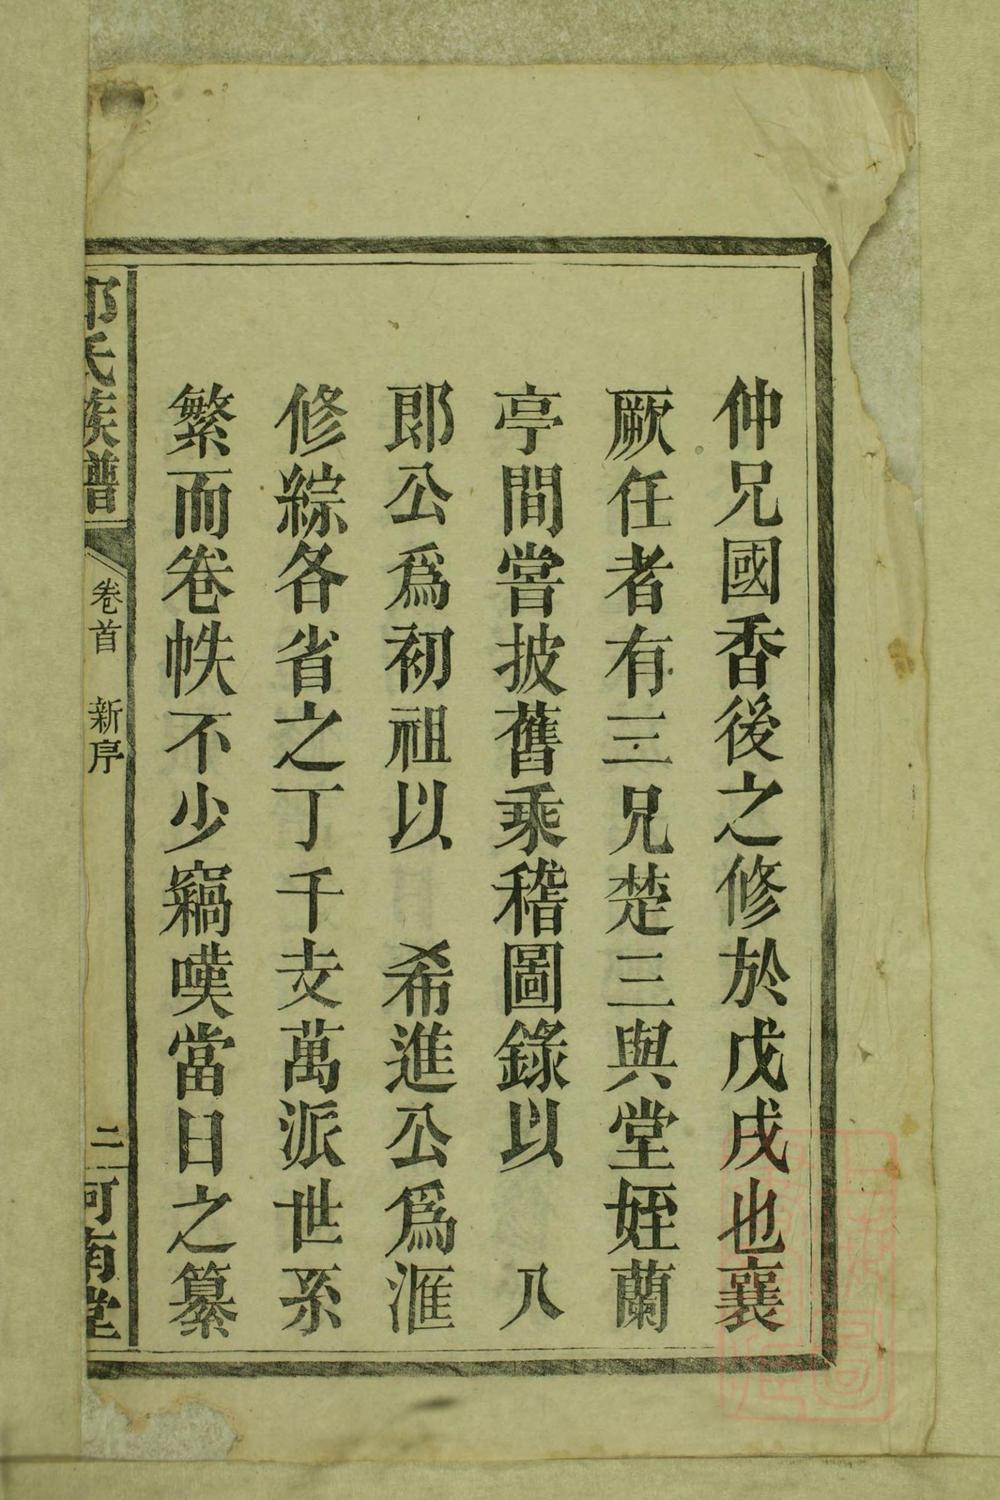 仲兄國香後之修於戊戌也襄
厥任者有三兄楚三與堂姪蘭
亭間嘗披舊乘稽圖錄以　八
郎公爲初祖以　希進公爲滙
修綜各省之丁千支萬派世系
繁而卷帙不少竊嘆當日之纂
氏族譜
卷首　新序
二
河南堂